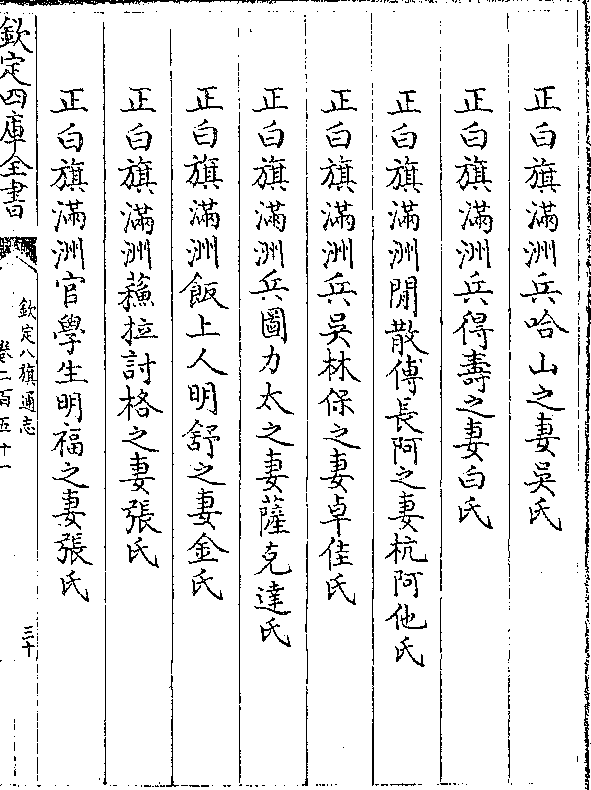 正白旗滿洲兵哈山之妻吳氏
正白旗滿洲兵得壽之妻白氏
正白旗滿洲閒散傅長阿之妻杭阿他氏
正白旗滿洲兵吳林保之妻卓佳氏
正白旗滿洲兵圖力太之妻薩克達氏
正白旗滿洲飯上人明舒之妻金氏
正白旗滿洲蘓拉討格之妻張氏
正白旗滿洲官學生明福之妻張氏
欽定四庫全書
欽定八旗通志
卷二百五十一
三十